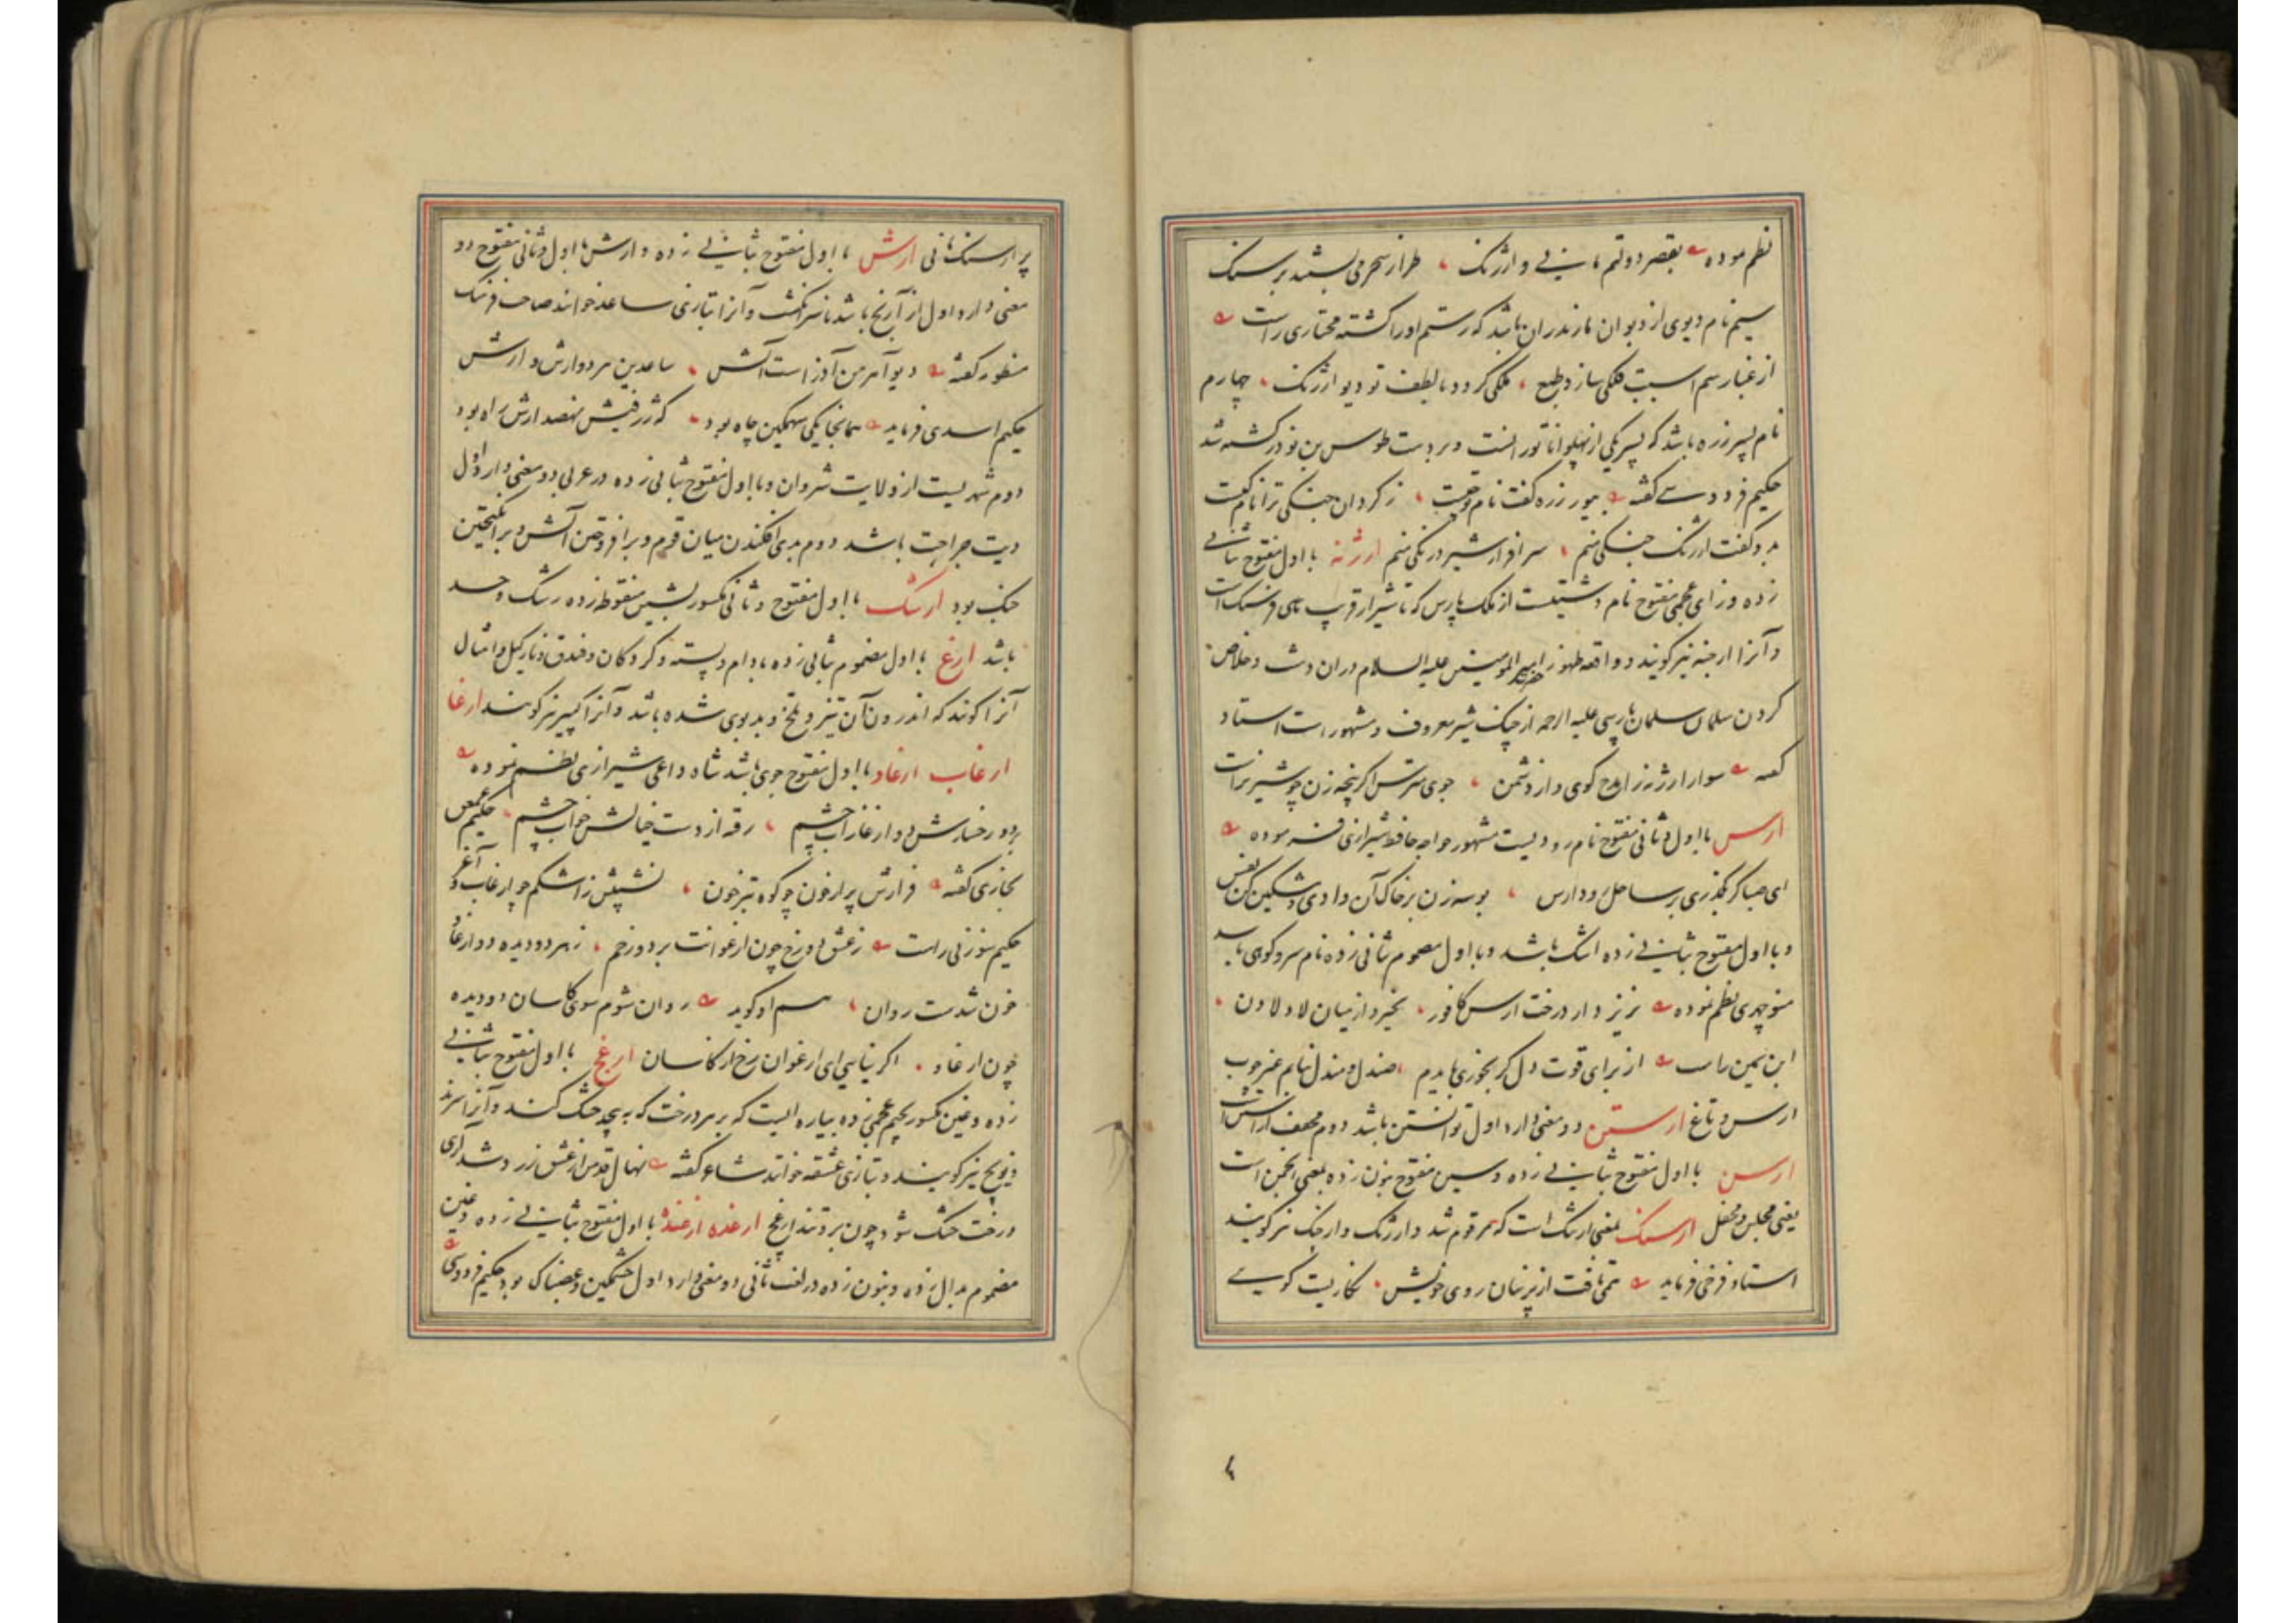 نظم نموده بقصر دولتم مانی و ارژنک طراز سحر می بستند بر سنک
سیم نام دیوی از دیوان مازندران باشد که رستم او را کشته مختاری راست
از غبار سم اسبت فلکی سازد طبع ملکی کردد با لطف تو دیو ارژنک چهارم
نام پسر زره باشد که پسر یکی از پهلوانان توران است و بر دست طوس بن نوذر کشته شد
حکیم فردوسی کفته بپور زره کفت نام تو چیست ز کردان جنکی ترا نام کیست
بدو کفت ارژنک جنکی منم سرافراز شیر درنکی منم ارژنه با اول مفتوح بثانی
زده و زای عجمی مفتوح نام دشتیست از ملک پارس که تا شیراز قریب سی فرسنک است
و آنرا ارجنه نیز کویند و واقعه ظهور حضرت امیر المومنین علیه السلام در ان دشت و خلاص
کردن سلمان سلمان پارسی علیه الرحمه از چنک شیر معروف و مشهور است استاد
کفته سوار ارژنه
ارس با اول و ثانی مفتوح نام رودیست مشهور خواجه حافظ شیرازی فرموده
ای صبا کر بکذری بر ساحل رود ارس بوسه زن بر خاک آن وادی و مشکین کن نفس
و با اول مفتوح بثانی زده اشک باشد و با اول مضموم بثانی زده نام سرو کوهی باشد
منوچهری نظم نموده بریزد از درخت ارس کافور بخیزد از میان لاد لادن
ابن یمین راست از برای قوت دل کر بخوری بایدم صندل و مندل نیابم غیر چوب
ارس و تاغ ارستن دو معنی دارد اول توانستن باشد دوم مخفف آراستن است
ارسن با اول مفتوح بثانی زده و سین مفتوح بنون زده بمعنی انجمن است
یعنی مجلس و محفل ارسنک بمعنی ارتنک است که مرقوم شد و ارژنک و ارجنک نیز کویند
استاد فرخی فرماید همی تافت از پرنیان روی خویش نکاریست کویی
پر ارسنک مانی ارش با اول مفتوح بثانی زده و ارش با اول و ثانی مفتوح دو
معنی دارد اول از آرنج باشد تا سر انکشت و آنرا بتازی ساعد خوانند صاحب فرهنک
منظور کفته دیو آهرمن آذر است آتش ساعدین هر دو ارش و ارش
حکیم اسدی فرماید همانجا یکی سهمکین چاه بود که ژرفیش نهصد ارش راه بود
دوم شهریست از ولایت شروان و با اول مفتوح بثانی زده در عربی دو معنی دارد اول
دیت جراحت باشد دوم بدی افکندن میان قوم و برافروختن آتش و برانکیختن
جنک بود ارشک با اول مفتوح و ثانی مکسور بشین منقوطه زده رشک و حسد
باشد ارغ با اول مضموم بثانی زده بادام و پسته و کردکان و فندق و نارکیل و امثال
آنرا کویند که اندرون آن تیز و تلخ و بدبوی شده باشد و آنرا کپیر نیز کویند ارغا
ارغاب ارغاو با اول مفتوح جوی باشد شاه داعی شیرازی نظم نموده
بر در رخسارش دو ارغاز آب چشم رفته از دست خیالش خواب چشم حکیم عمعق
بخاری کفته فرازش پر از خون چو کوه تبرخون نشیبش ز اشکم چو ارغاب و آغر
حکیم سوزنی راست ز عشق دو رخ چون ارغوانت بر دو رخم ز هر دو دیده دو ارغاو
خون شدست روان هم او کوید روان شوم سوی کاسان دو دیده
چون ارغاو اکر نیایی ای ارغوان رخ از کاسان ارغج با اول مفتوح بثانی
زده و غین مکسور بجیم عجمی زده بیاره ایست که بر هر درخت که به پیچد خشک کند و آنرا سرند
و نویج نیز کویند و بتازی عشقه خوانند شاعر کفته نهال قدمن از عشق زرد شد آری
درخت خشک شود چون برو تند ارغج ارغده ارغنده با اول مفتوح بثانی زده و غین
مضموم بدال زده و بنون زده در لغت ثانی دو معنی دارد اول خشمکین و غضبناک بود حکیم فردوسی
۴